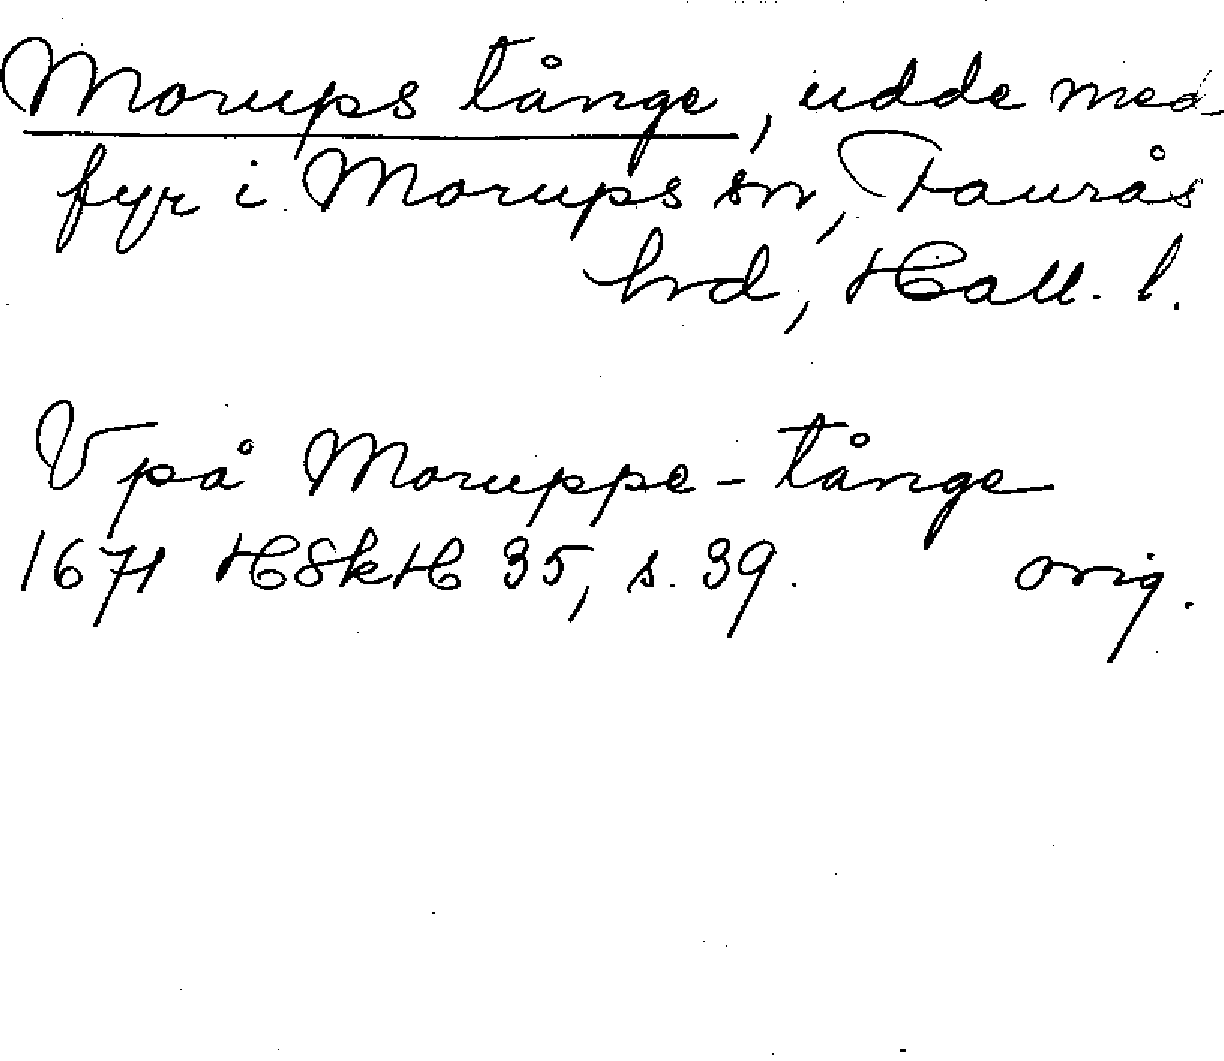 Morups tånge, udde med
fyr i Morups sn, Faurås
hrd, Hall. l.
V på Moruppe-tånge
1671 HSkH 35, s. 39. orig.